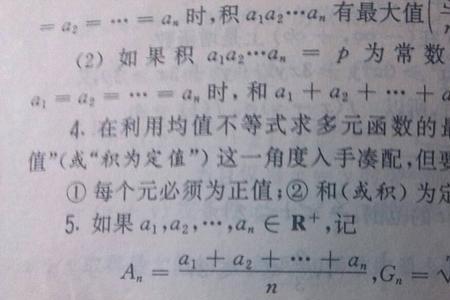 = a₂ = ⋯ = aₙ 时,积 a₁a₂⋯aₙ 有最大值(
(2) 如果积 a₁a₂⋯aₙ = p 为常数
a₁ = a₂ = ⋯ = aₙ 时, 和 a₁ + a₂ + ⋯ +
4. 在利用均值不等式求多元函数的
值”(或“积为定值”) 这一角度入手凑配,但要
① 每个元必须为正值;② 和(或积) 为定
5. 如果 a₁,a₂,⋯,aₙ ∈ R⁺,记
Aₙ = (a₁ + a₂ + ⋯ + aₙ)/n ,Gₙ = √